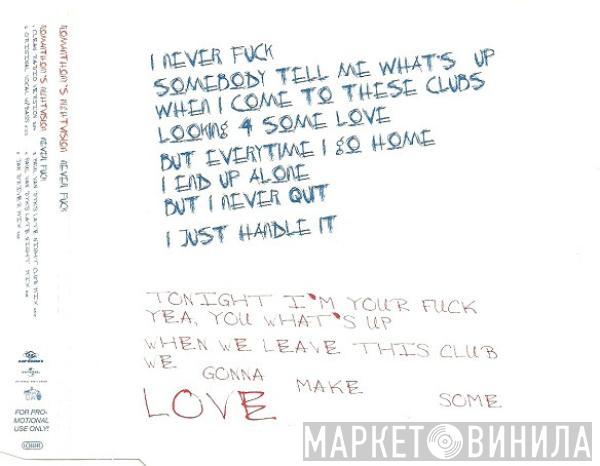 I NEVER FUCK
SOMEBODY TELL ME WHAT'S UP
WHEN I COME TO THESE CLUBS
LOOKING 4 SOME LOVE
BUT EVERYTIME I GO HOME
I END UP ALONE
BUT I NEVER QUT
I JUST HANDLE IT
TONIGHT I'M YOUR FUCK
YEA, YOU WHAT'S UP
WHEN WE LEAVE THIS CLUB
WE
GONNA
MAKE
SOME
LOVE
ROMANTHONY'S NIGHTVISION NEVER FUCK
UNIVERSAL
FOR PRO-
MOTIONAL
USE ONLY!
МАРКЕТ ВИНИЛА